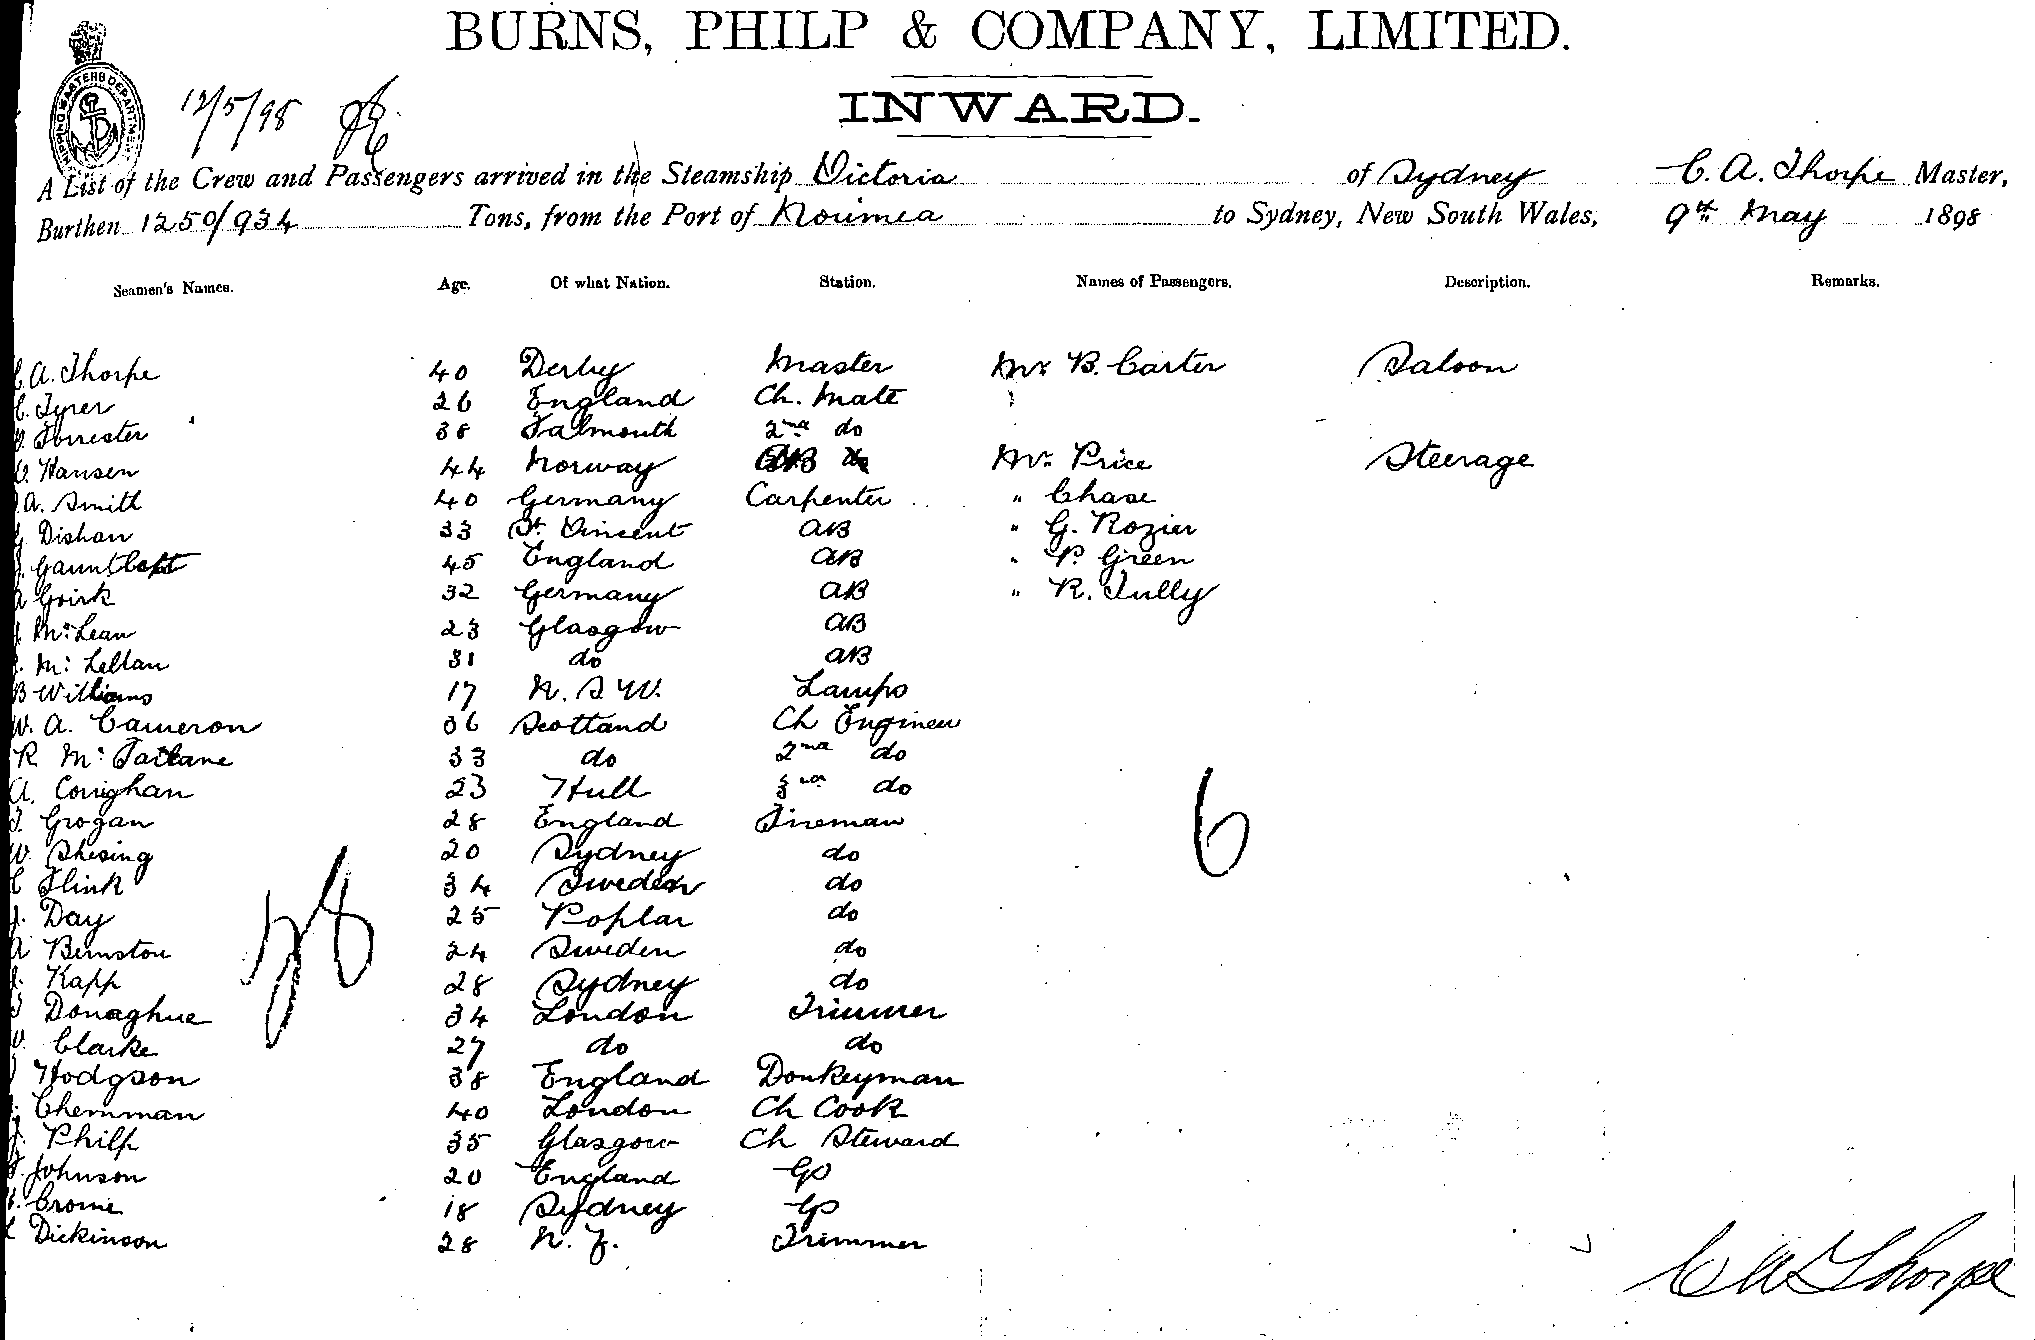 BURNS, PHILP & COMPANY, LIMITED.
INWARD.
12/5/98
A List of the Crew and Passengers arrived in the Steamship Victoria of Sydney C. A. Thorpe Master,
Burthen 1250/934 Tons, from the Port of Noumea to Sydney, New South Wales, 9th May 1898
Seamen's Names. Age. Of what Nation. Station. Names of Passengers. Description. Remarks.
C. A. Thorpe 40 Derby Master Mr B. Carter Saloon
C. Tyrer 26 England Ch. Mate
Forrester 38 Falmouth 2nd do
Hansen 44 Norway AB Mr Price Steerage
A. Smith 40 Germany Carpenter " Chase
Dishan 33 St. Vincent AB " G. Rozier
Gauntlett 45 England AB " P. Green
Goirk 32 Germany AB " R. Tully
McLean 23 Glasgow AB
McLellan 31 do AB
B Williams 17 N. S. W. Lamps
W. A. Cameron 36 Scotland Ch Engineer
R McFarlane 33 do 2nd do
A. Conighan 23 Hull 3rd do
Grogan 28 England Fireman
W. Shesing 20 Sydney do
Flink 34 Sweden do
Day 25 Poplar do
A Bernston 24 Sweden do
Kapp 28 Sydney do
Donaghue 34 London Trimmer
Clarke 27 do do
Hodgson 38 England Donkeyman
Chernman 40 London Ch Cook
J. Philp 35 Glasgow Ch Steward
Johnson 20 England
Cromie 18 Sydney
Dickinson 28 N. Z. Trimmer
28
6
C A Thorpe